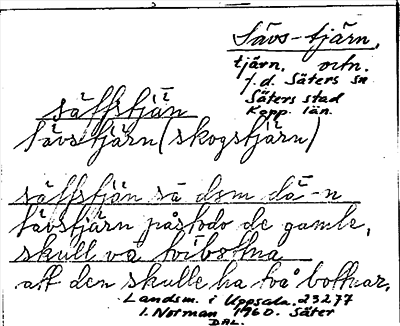 Sävs-tjärn,
tjärn. ortn.
f.d. Säters sn
Säters stad
Kopp. län.
säffstjän
Sävstjärn (skogstjärn)
säffstjän sa dom dä-n
Sävstjärn påstodo de gamle,
skull va tvibottna
att den skulle ha två bottnar.
Landsm. i Uppsala. 23277
I. Norman 1960. Säter
DAL.